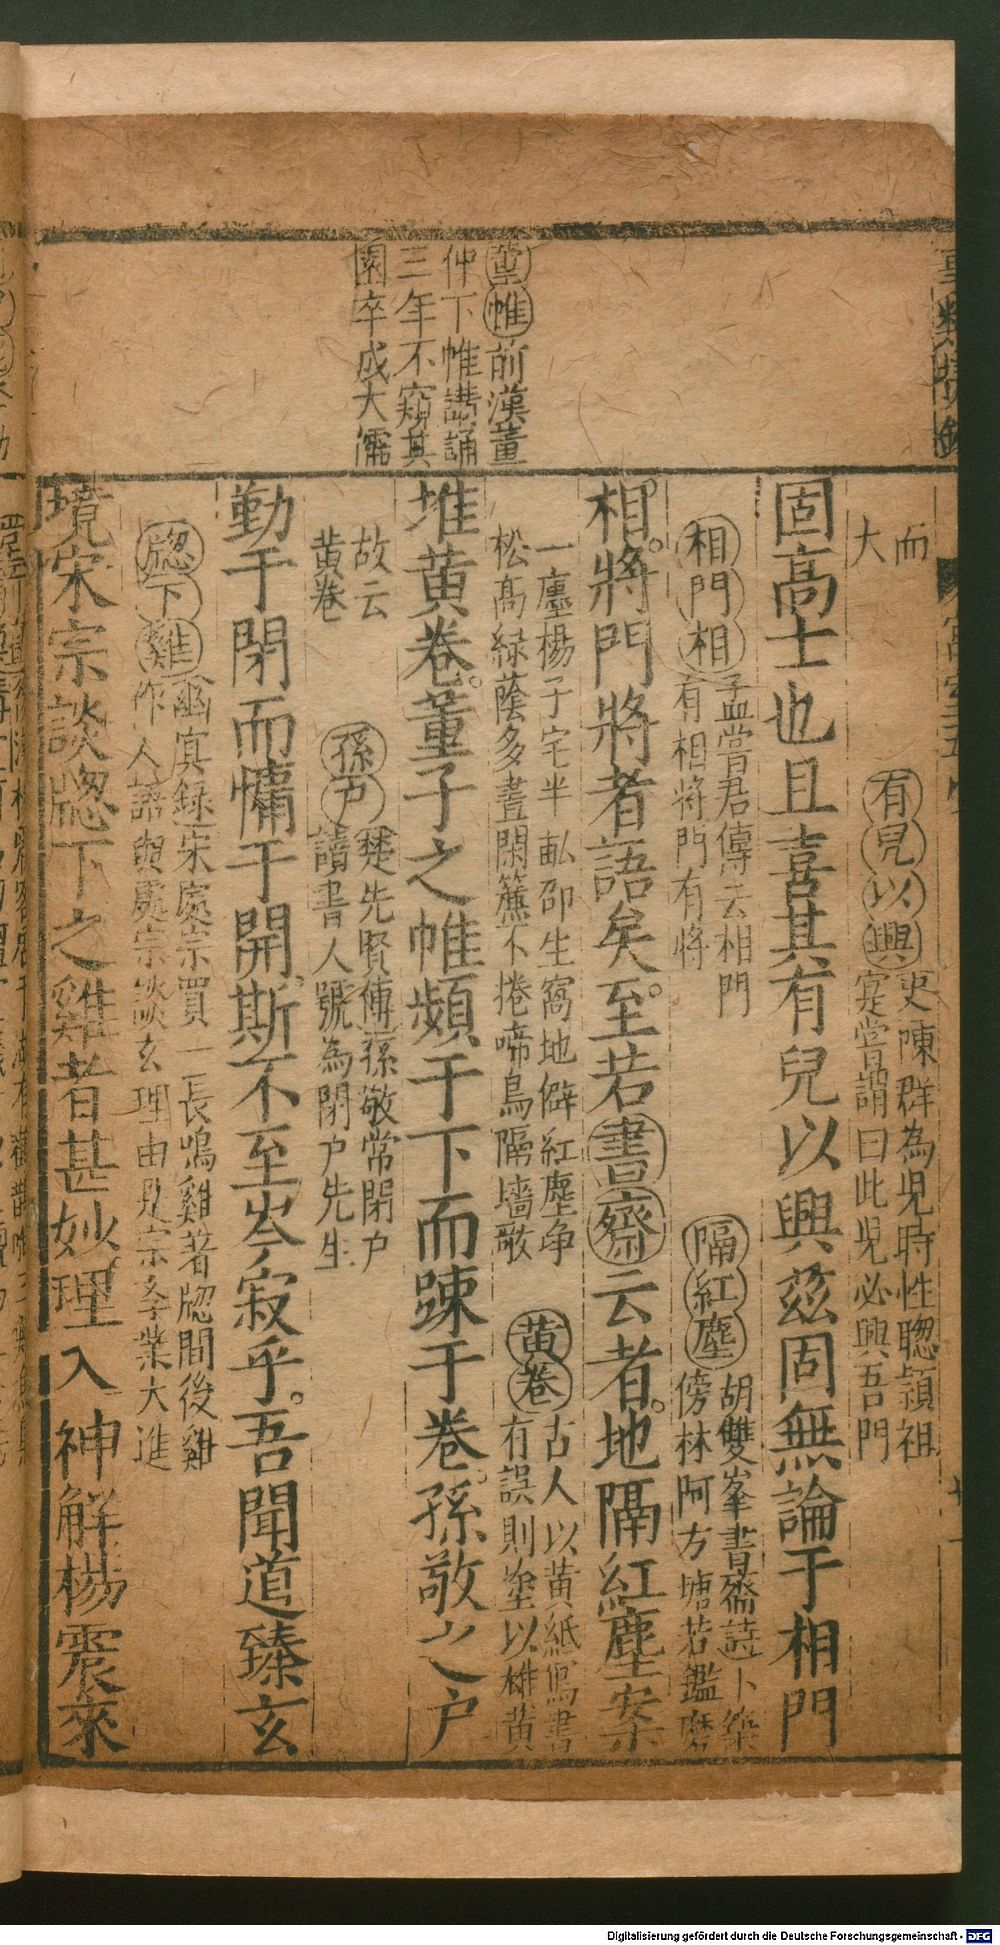 董帷前漢董
仲下帷講誦
三年不窺其
園卒成大儒
而
大
有兒以興
吏陳群為児時性聦頴祖
寔嘗謂曰此児必興吾門
固高士也且喜其有兒以興茲固無論于相門
相門相
孟嘗君傳云相門
有相將門有將
隔紅塵
胡雙峯書齋詩卜築
傍林阿方塘若鑑磨
相將門將者語矣至若書齋云者地隔紅塵案
一廛楊子宅半畝邵生窩地僻紅塵净
松高緑蔭多晝閑簾不捲啼鳥隔墻歌
黄卷
古人以黄紙寫書
有誤則塗以雄黄
堆黄卷董子之帷頻于下而踈于卷孫敬之户
故云
黄卷
孫户
楚先賢傳孫敬常閉户
讀書人號為閉户先生
勤于閉而慵于開斯不至岑寂乎吾聞道臻玄
牕下雞
幽冥録宋處宗買一長鳴雞著牕間後雞
作人語與處宗談玄理由此宗李業大進
境宋宗談牕下之雞者甚妙理入神解楊震來
Digitalisierung gefördert durch die Deutsche Forschungsgemeinschaft - DFG